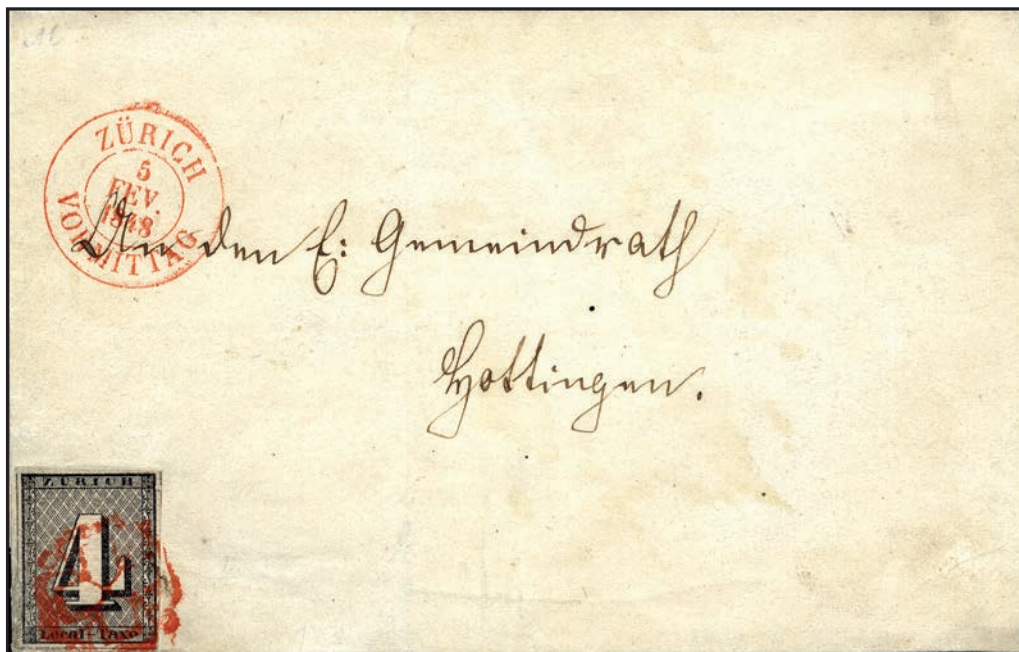 ZÜRICH
5
FEV.
1848
VORMITTAG
An den E: Gemeindrath
Hottingen.
ZÜRICH
4
Local-Taxe